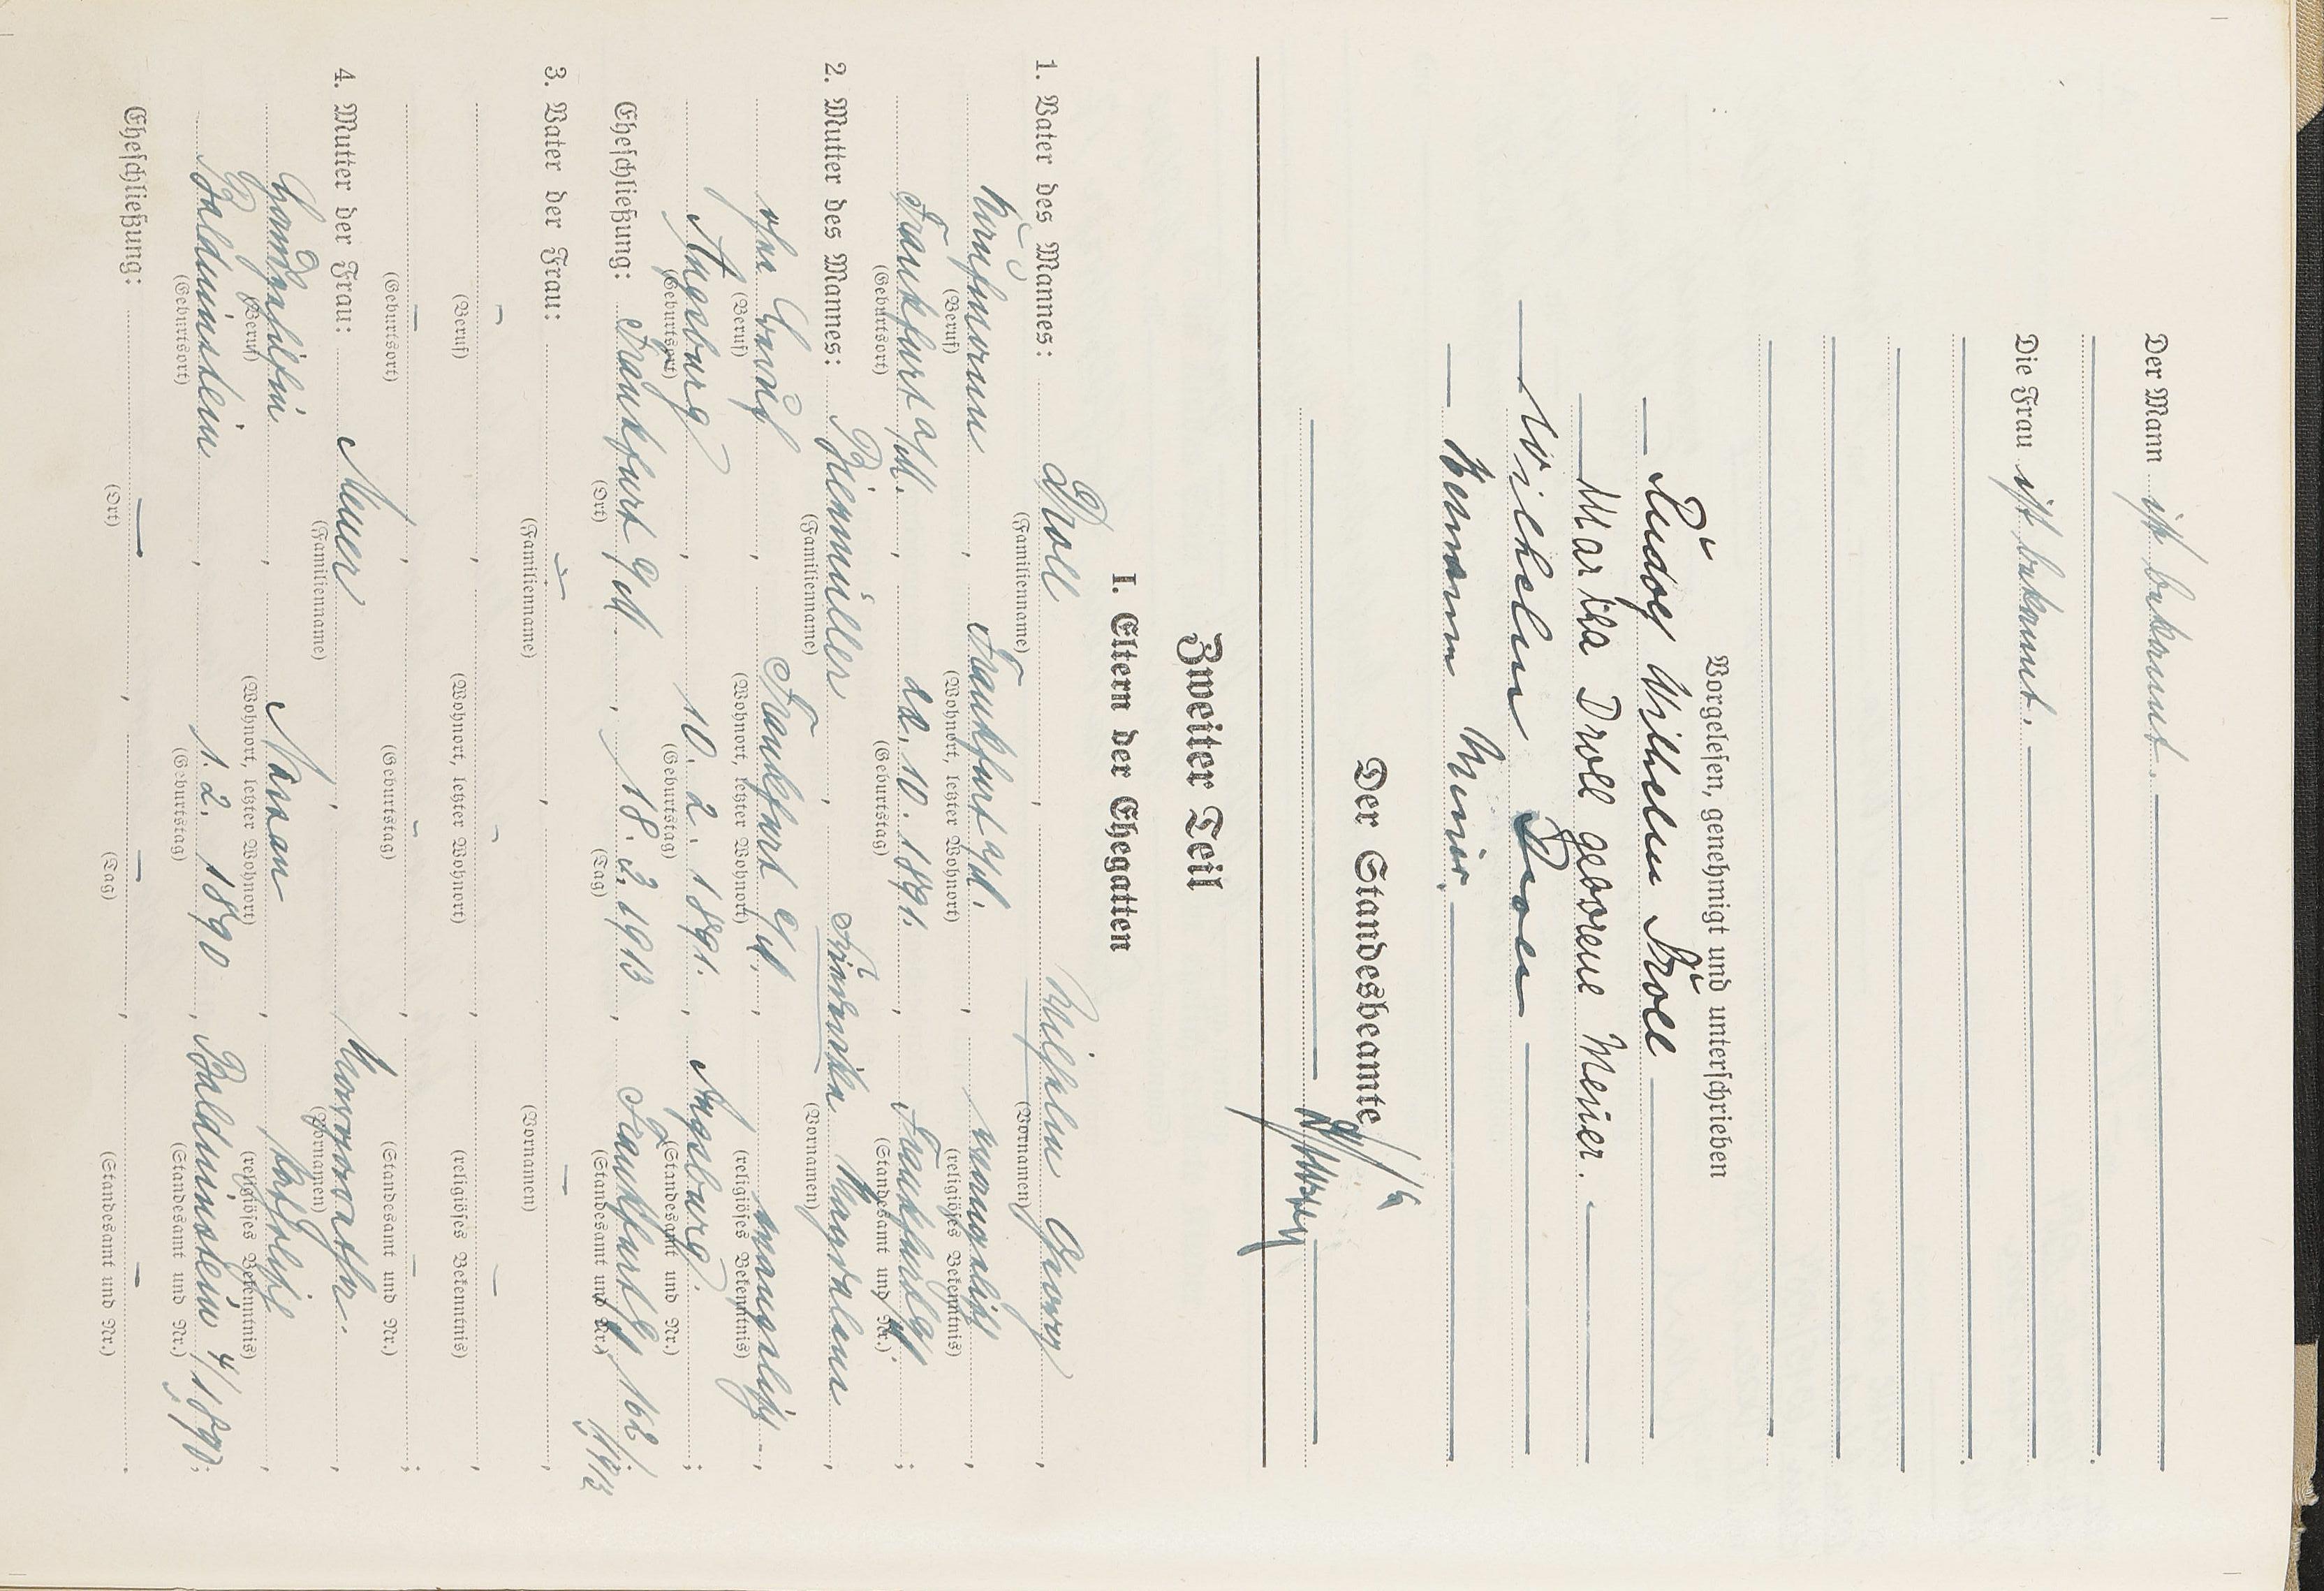 Der Mann ist bekannt.
Die Frau ist bekannt.
Vorgelesen, genehmigt und unterschrieben
Rudolf Wilhelm Droll
Martha Droll geborene Meuer.
Wilhelm Droll
Hermann
Der Standesbeamte
Zweiter Teil
I. Eltern der Ehegatten
1. Vater des Mannes: Droll, Wilhelm Georg,
(Familienname) (Vornamen)
Kaufmann, Frankfurt a/M., evangelisch,
(Beruf) (Wohnort, letzter Wohnort) (religiöses Bekenntnis)
Frankfurt a/M., 22. 10. 1891., Frankfurt a/M.;
(Geburtsort) (Geburtstag) (Standesamt und Nr.)
2. Mutter des Mannes: Bienmüller, Friederika Magdalena,
(Familienname) (Vornamen)
ohne Beruf, Frankfurt a/M., evangelisch,
(Beruf) (Wohnort, letzter Wohnort) (religiöses Bekenntnis)
Augsburg, 10. 2. 1891., Augsburg.;
(Geburtsort) (Geburtstag) (Standesamt und Nr.)
Eheschließung: Frankfurt a/M., 18. 3. 1913, Frankfurt a/M 162/1913
(Ort) (Tag) (Standesamt und Nr.)
3. Vater der Frau: –, –,
(Familienname) (Vornamen)
–, –, –,
(Beruf) (Wohnort, letzter Wohnort) (religiöses Bekenntnis)
–, –, –;
(Geburtsort) (Geburtstag) (Standesamt und Nr.)
4. Mutter der Frau: Meuer, Margaretha.,
(Familienname) (Vornamen)
Nassau, katholisch,
(Beruf) (Wohnort, letzter Wohnort) (religiöses Bekenntnis)
Balduinstein, 1. 2. 1890, Balduinstein 4/1890;
(Geburtsort) (Geburtstag) (Standesamt und Nr.)
Eheschließung: –, –, –.
(Ort) (Tag) (Standesamt und Nr.)